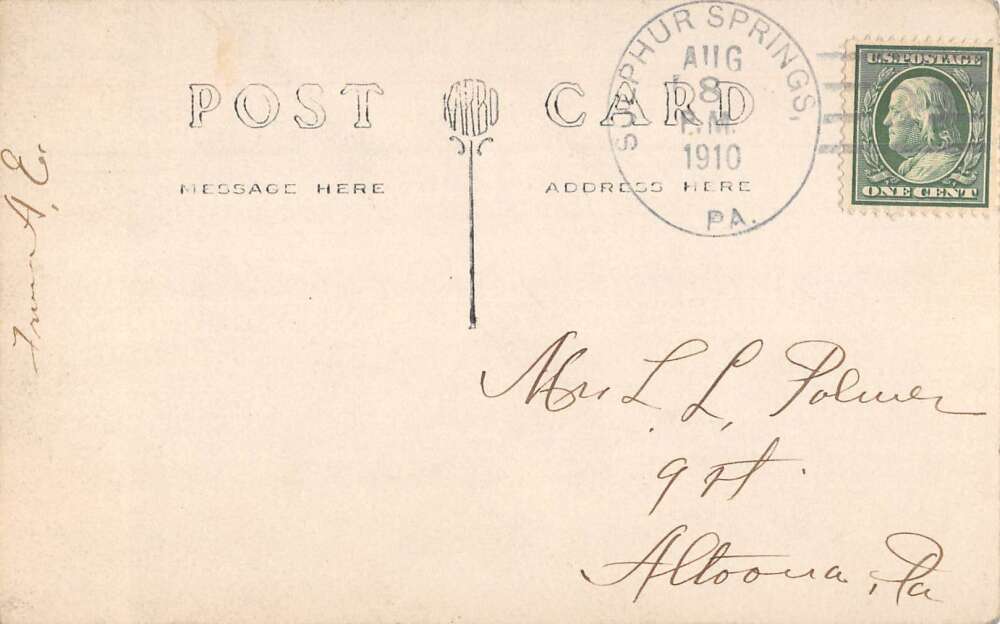 POST CARD
MESSAGE HERE
ADDRESS HERE
SULPHUR SPRINGS,
AUG
8
P.M.
1910
PA.
U.S. POSTAGE
ONE CENT
From A. E.
Mrs L. L. Palmer
9 st.
Altoona, Pa